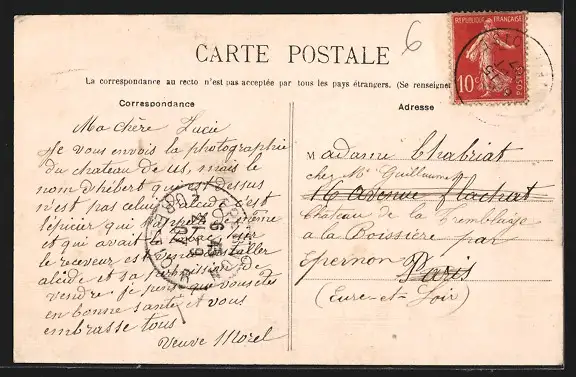 6
CARTE POSTALE
La correspondance au recto n'est pas acceptée par tous les pays étrangers. (Se renseigner
REPUBLIQUE FRANÇAISE
10c
POSTES
Correspondance
Ma chère Lucie
Je vous envois la photographie
du chateau de us, mais le
nom D'hébert qui est dessus
n'est pas celui
l'épicier qui même
et qui avait
le receveur est installer
alcide et sa permission de
vendre je pense que vous etes
en bonne santé et vous
embrasse tous
Veuve Morel
Adresse
Madame Chabriat
chez Mr Guillaume
16 avenue Flachat
Château de la Tremblaye
a la Boissière par
Epernon Paris
(Eure-et-Loir)